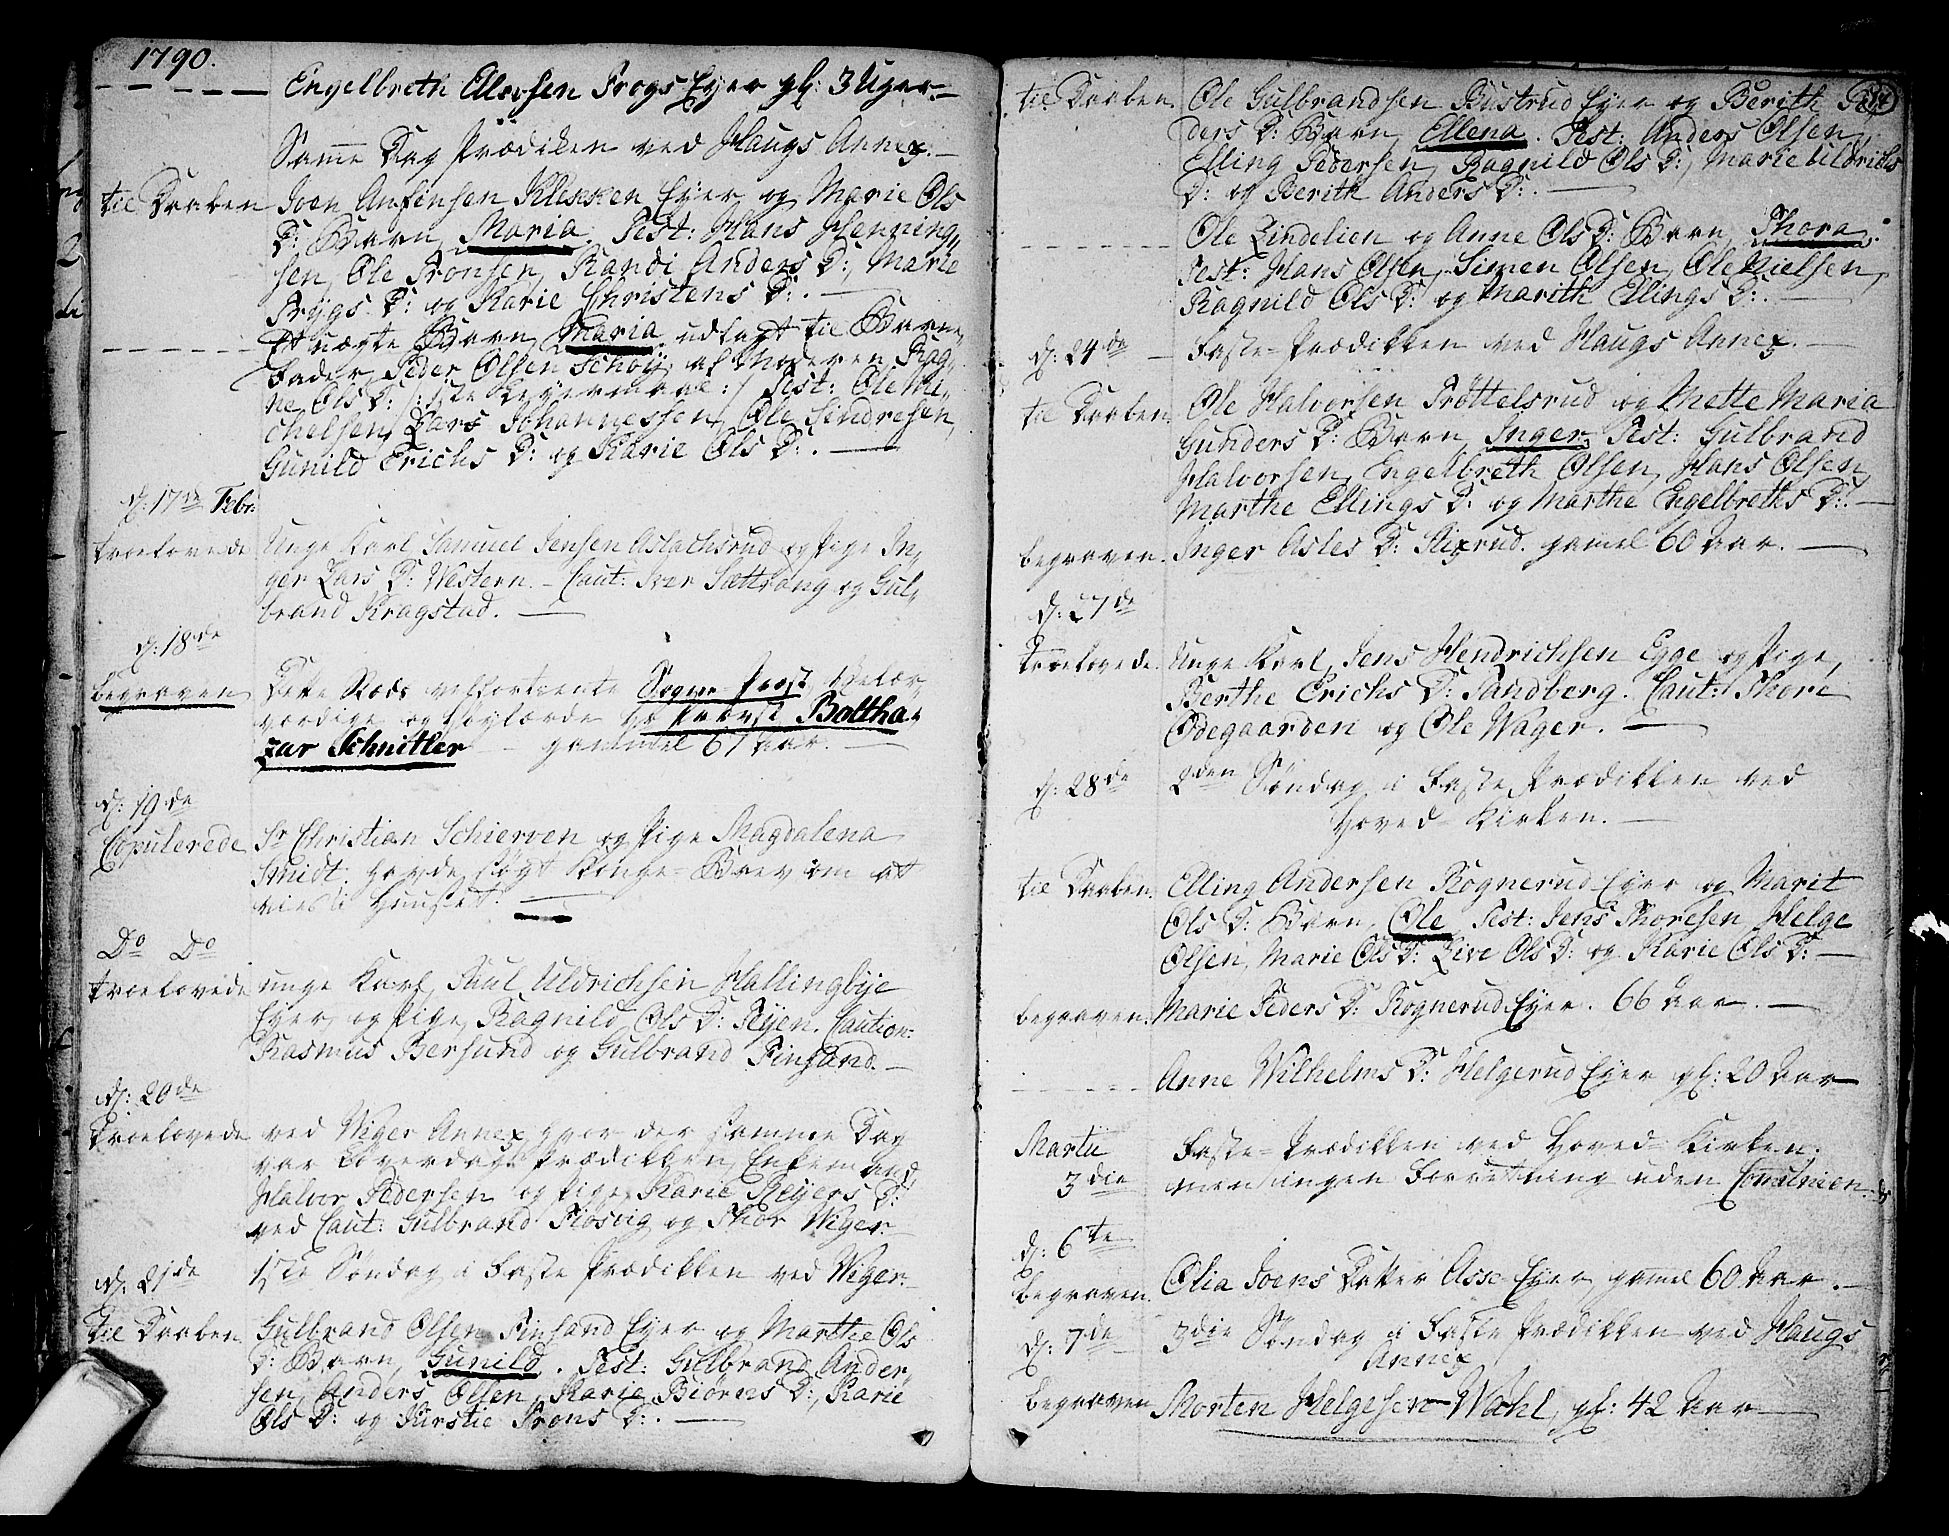 1790.
Engelbreth Ellevsen Frogs Eyer gl: 3 Uger.
Samme Dag Prædiken ved Haugs Annex.
til Daaben Joen Anfinsen Klekken Eyer og Marie Ols
D: Barn Maria Test: Hans Henning,,
sen, Ole Tronsen, Randi Anders D:, Marie
Trygs D: og Karie Christens D:.
Et uægte Barn Maria udlagt til Barne,,
Fader Peder Olsen Schøy af Moderen Rag,,
ne Ols D: /:1ste Leyermaal:/ Test: Ole Mi,,
chelsen, Lars Johannessen, Ole Sindresen,
Gunild Erichs D: og Karie Ols D:.
d: 17de Febr:
troelovede Unge Karl Samuel Jensen Aslachsrud og Pige In,,
ger Lars D: Western. Caut: Iver Sættrang og Gul,,
brand Kragstad.
d: 18de
begraven Dette Stæds velfortiente Sogne Præst Velær,,
værdige og Høylærde Hr Provst Baltha,,
zar Schnitler gammel 67 Aar.
d: 19de
Copulerede Sr Christian Schierven og Pige Magdalena
Smidt, havde søgt Konge-Brev om at
vies i Huuset.
Do Do
troelovede unge Karl, Paul Uldrichsen Hallingbye
Eyer, og Pige, Ragnild Ols D: Røjen. Caution:
Rasmus Bersund og Gulbrand Finsand.
d: 20de
troelovede ved Wiger Annex, hvor der samme Dag
var Løverdags Prædikken, Enkemand
Halvor Pedersen og Pige, Karie Reyers D:
ved Caut: Gulbrand Flosvig og Thor Wiger.
d: 21de 1ste Søndag i Faste Prædikken ved Wiger.
til Daaben Gulbrand Olsen Finsand Eyer og Marthe Ols
D: Barn, Gunild. Test: Gulbrand Ander,,
sen, Anders Olsen, Karie Biørns D:, Karie
Ols D: og Kirstie Trons D:.
til Daaben Ole Gulbrandsen Bustrud Eyer og Berith Pe
ders D: Barn, Ellena. Test: Anders Olsen,
Elling Pedersen, Ragnild Ols D:, Marie Uldrichs
D: og Berith Anders D:.
Ole Lindelien og Anne Ols D: Barn, Thora.
Test: Hans Olsen, Simen Olsen, Ole Nielsen,
Ragnild Ols D: og Marith Ellings D:.
d: 24de Faste-Prædikken ved Haugs Annex.
til Daaben Ole Halvorsen Trøttelsrud og Mette Maria
Gunders D: Barn, Inger Test: Gulbrand
Halvorsen, Engelbreth Olsen, Hans Olsen
Marthe Ellings D: og Marthe Engelbreths D:.
begraven. Inger Asles D: Slixrud. gamel 60 Aar.
d: 27de
troelovede. Unge Karl, Jens Hendrichsen Egge og Pige,
Berthe Erichs D: Sandberg. Caut: Thore
Ødegaarden og Ole Wager.
d: 28de 2den Søndag i Faste Prædikken ved
Hoved-Kirken.
til Daaben. Elling Andersen Rognerud Eyer og Marit
Ols D: Barn, Ole, Test: Jens Thoresen, Helge
Olsen, Marie Ols D: Live Ols D: og Karie Ols D:
begraven: Marie Peders D: Rognerud Eyer. 66 Aar.
Anne Wilhelms D: Helgerud Eyer gl: 20 Aar
Martii Faste-Prædikken ved Hoved-Kirken.
3die men ingen Forretning uden Comunion
d: 6te
begraven. Olia Joens Datter Asse Eyer, gamel 60 Aar.
d: 7de 3die Søndag i Faste Prædikken ved Haugs
Annex
begraven Morten Helgesen Wæhl, gl: 42 Aar